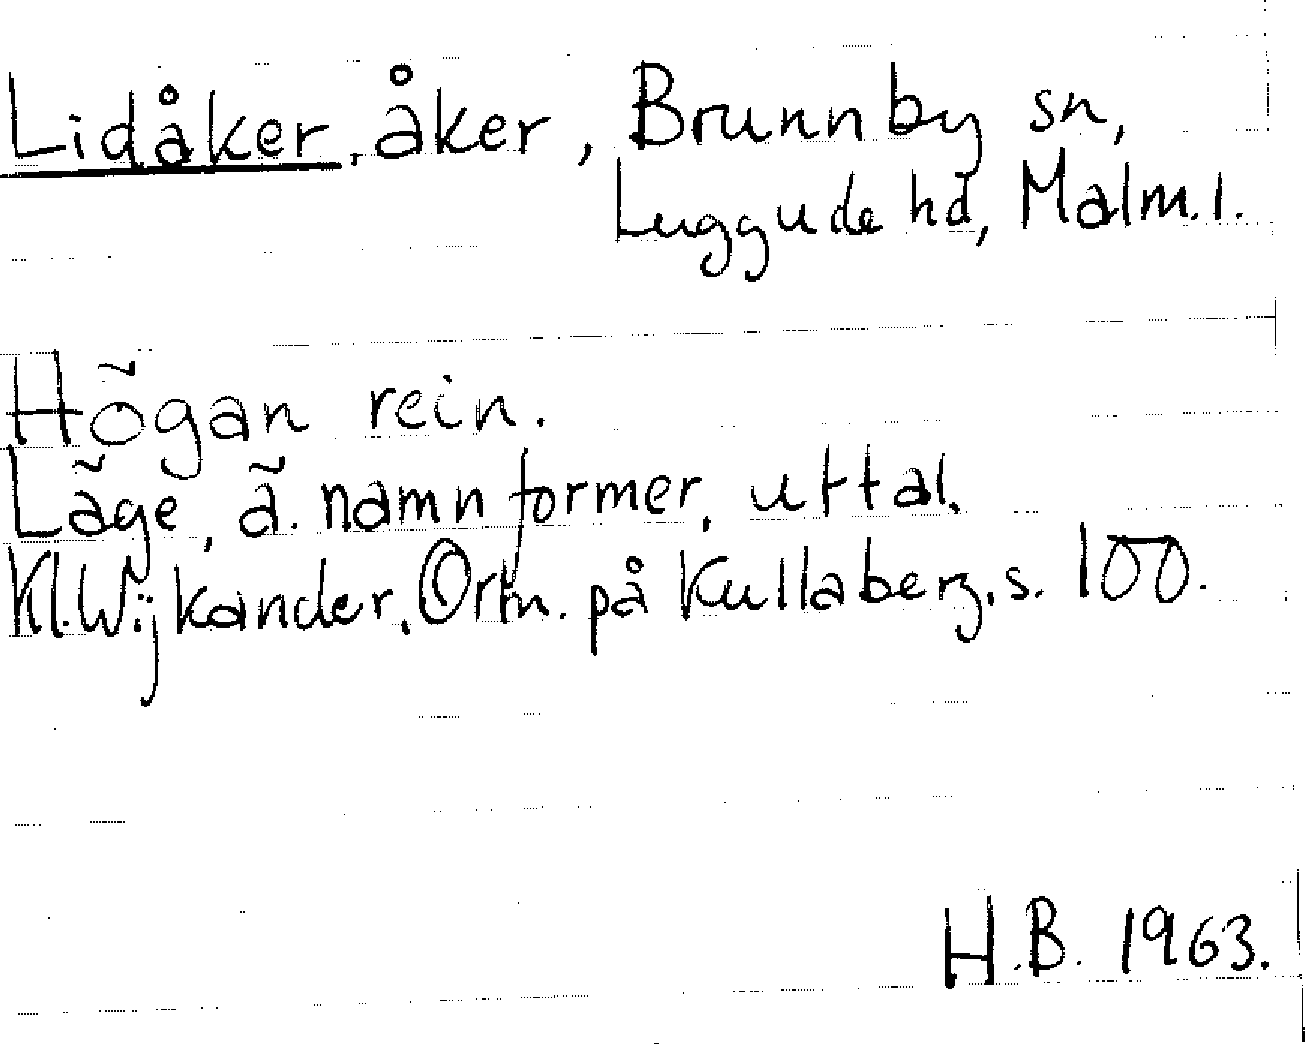 Lidåker, åker, Brunnby sn,
Luggude hd, Malm.l.
Högan rein.
Läge, ä. namnformer, uttal.
Kl. Wijkander, Ortn. på Kullaberg, s. 100.
H.B. 1963.